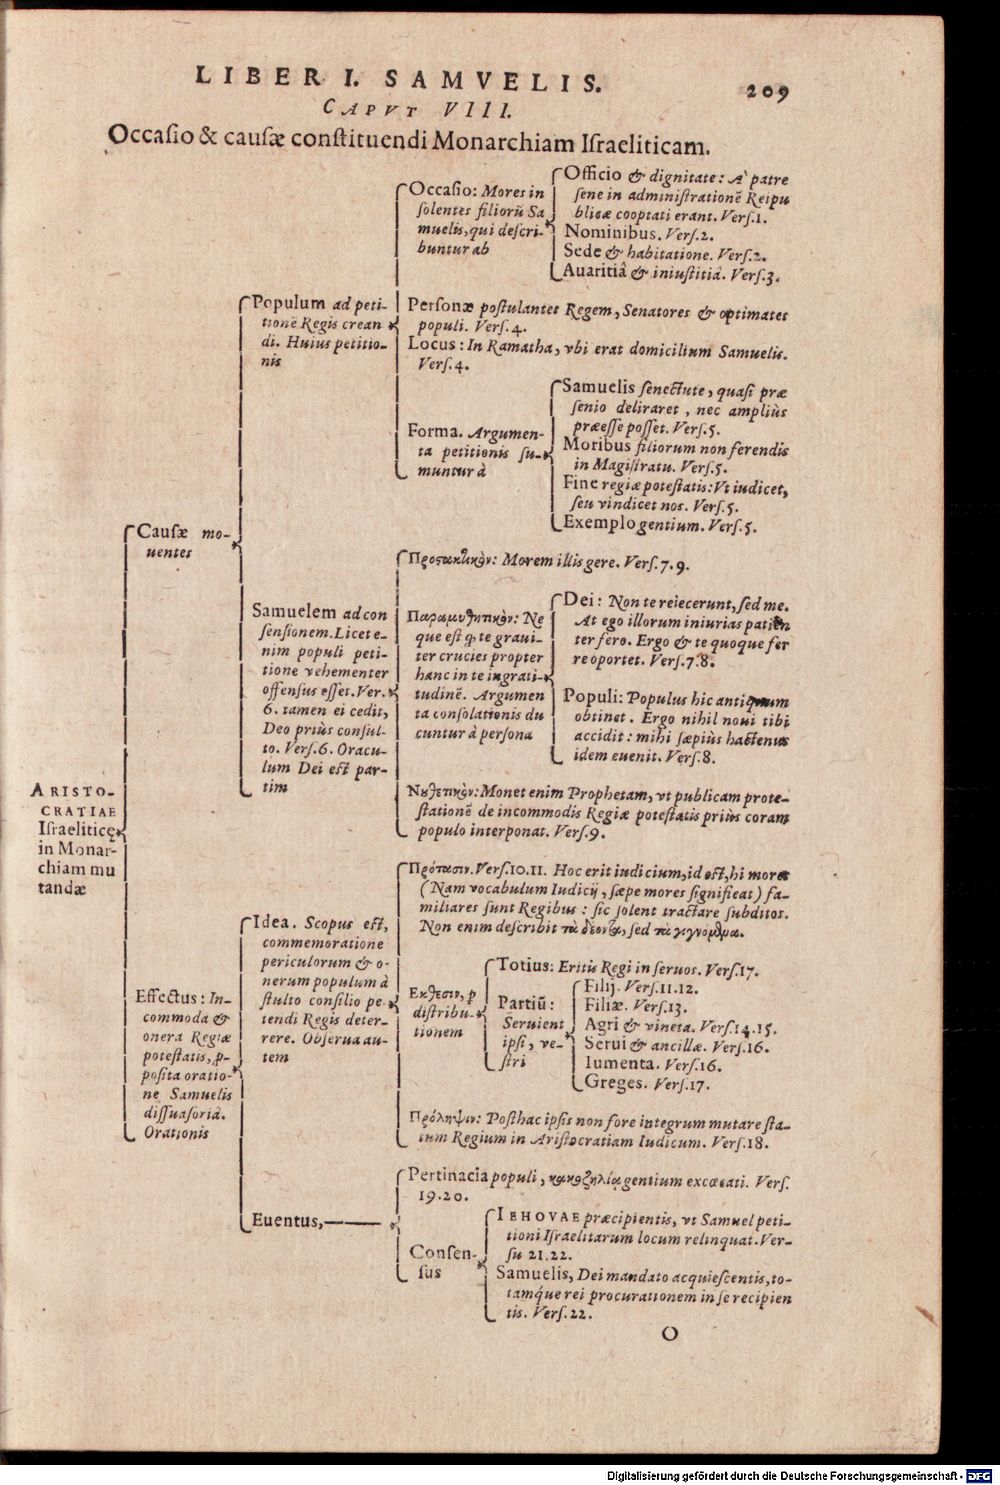 LIBER I. SAMVELIS.
209
CAPVT VIII.
Occaſio & cauſæ conſtituendi Monarchiam Iſraeliticam.
ARISTO-
CRATIAE
Iſraeliticę
in Monar-
chiam mu
tandæ
Cauſæ mo-
uentes
Populum ad peti-
tionē Regis crean
di. Huius petitio-
nis
Occaſio: Mores in
ſolentes filiorũ Sa
muelis, qui deſcri-
buntur ab
Officio & dignitate: A' patre
ſene in adminiſtrationē Reipu
blicæ cooptati erant. Verſ.1.
Nominibus. Verſ.2.
Sede & habitatione. Verſ.2.
Auaritiâ & iniuſtitiâ. Verſ.3.
Perſonæ poſtulantes Regem, Senatores & optimates
populi. Verſ.4.
Locus: In Ramatha, vbi erat domicilium Samuelis.
Verſ.4.
Forma. Argumen-
ta petitionis ſu-
muntur à
Samuelis ſenectute, quaſi præ
ſenio deliraret, nec ampliùs
præeſſe poſſet. Verſ.5.
Moribus filiorum non ferendis
in Magiſtratu. Verſ.5.
Fine regiæ poteſtatis: Vt iudicet,
ſeu vindicet nos. Verſ.5.
Exemplo gentium. Verſ.5.
Samuelem ad con
ſenſionem. Licet e-
nim populi peti-
tione vehementer
offenſus eſſet. Ver.
6. tamen ei cedit,
Deo priùs conſul-
to. Verſ.6. Oracu-
lum Dei eſt par-
tim
Προςακτικὸν: Morem illis gere. Verſ.7.9.
Παραμυθητικὸν: Ne
que eſt ꝙ te graui-
ter crucies propter
hanc in te ingrati-
tudinē. Argumen
ta conſolationis du
cuntur à perſona
Dei: Non te reiecerunt, ſed me.
At ego illorum iniurias patien
ter fero. Ergo & te quoque fer
re oportet. Verſ.7.8.
Populi: Populus hic antiquum
obtinet. Ergo nihil noui tibi
accidit: mihi ſæpiùs hactenus
idem euenit. Verſ.8.
Νουθετικὸν: Monet enim Prophetam, vt publicam prote-
ſtationē de incommodis Regiæ poteſtatis priùs coram
populo interponat. Verſ.9.
Effectus: In-
commoda &
onera Regiæ
poteſtatis, ꝓ-
poſita oratio-
ne Samuelis
diſſuaſoriâ.
Orationis
Idea. Scopus eſt,
commemoratione
periculorum & o-
nerum populum à
ſtulto conſilio pe-
tendi Regis deter-
rere. Obſerua au-
tem
Πρότασιν. Verſ.10.11. Hoc erit iudicium, id eſt, hi mores
(Nam vocabulum Iudicij, ſæpe mores ſignificat) fa-
miliares ſunt Regibus: ſic ſolent tractare ſubditos.
Non enim deſcribit τὰ δέοντα, ſed τὰ γιγνόμενα.
Εκθεσιν, ꝑ
diſtribu-
tionem
Totius: Eritis Regi in ſeruos. Verſ.17.
Partiũ:
Seruient
ipſi, ve-
ſtri
Filij. Verſ.11.12.
Filiæ. Verſ.13.
Agri & vineta. Verſ.14.15.
Serui & ancillæ. Verſ.16.
Iumenta. Verſ.16.
Greges. Verſ.17.
Πρόληψιν: Poſthac ipſis non fore integrum mutare ſta-
tum Regium in Ariſtocratiam Iudicum. Verſ.18.
Euentus,
Pertinacia populi, κακοζηλίᾳ gentium excæcati. Verſ.
19.20.
Conſen-
ſus
IEHOVAE præcipientis, vt Samuel peti-
tioni Iſraelitarum locum relinquat. Ver-
ſu 21.22.
Samuelis, Dei mandato acquieſcentis, to-
tamq́ue rei procurationem in ſe recipien
tis. Verſ.22.
O
Digitalisierung gefördert durch die Deutsche Forschungsgemeinschaft - DFG